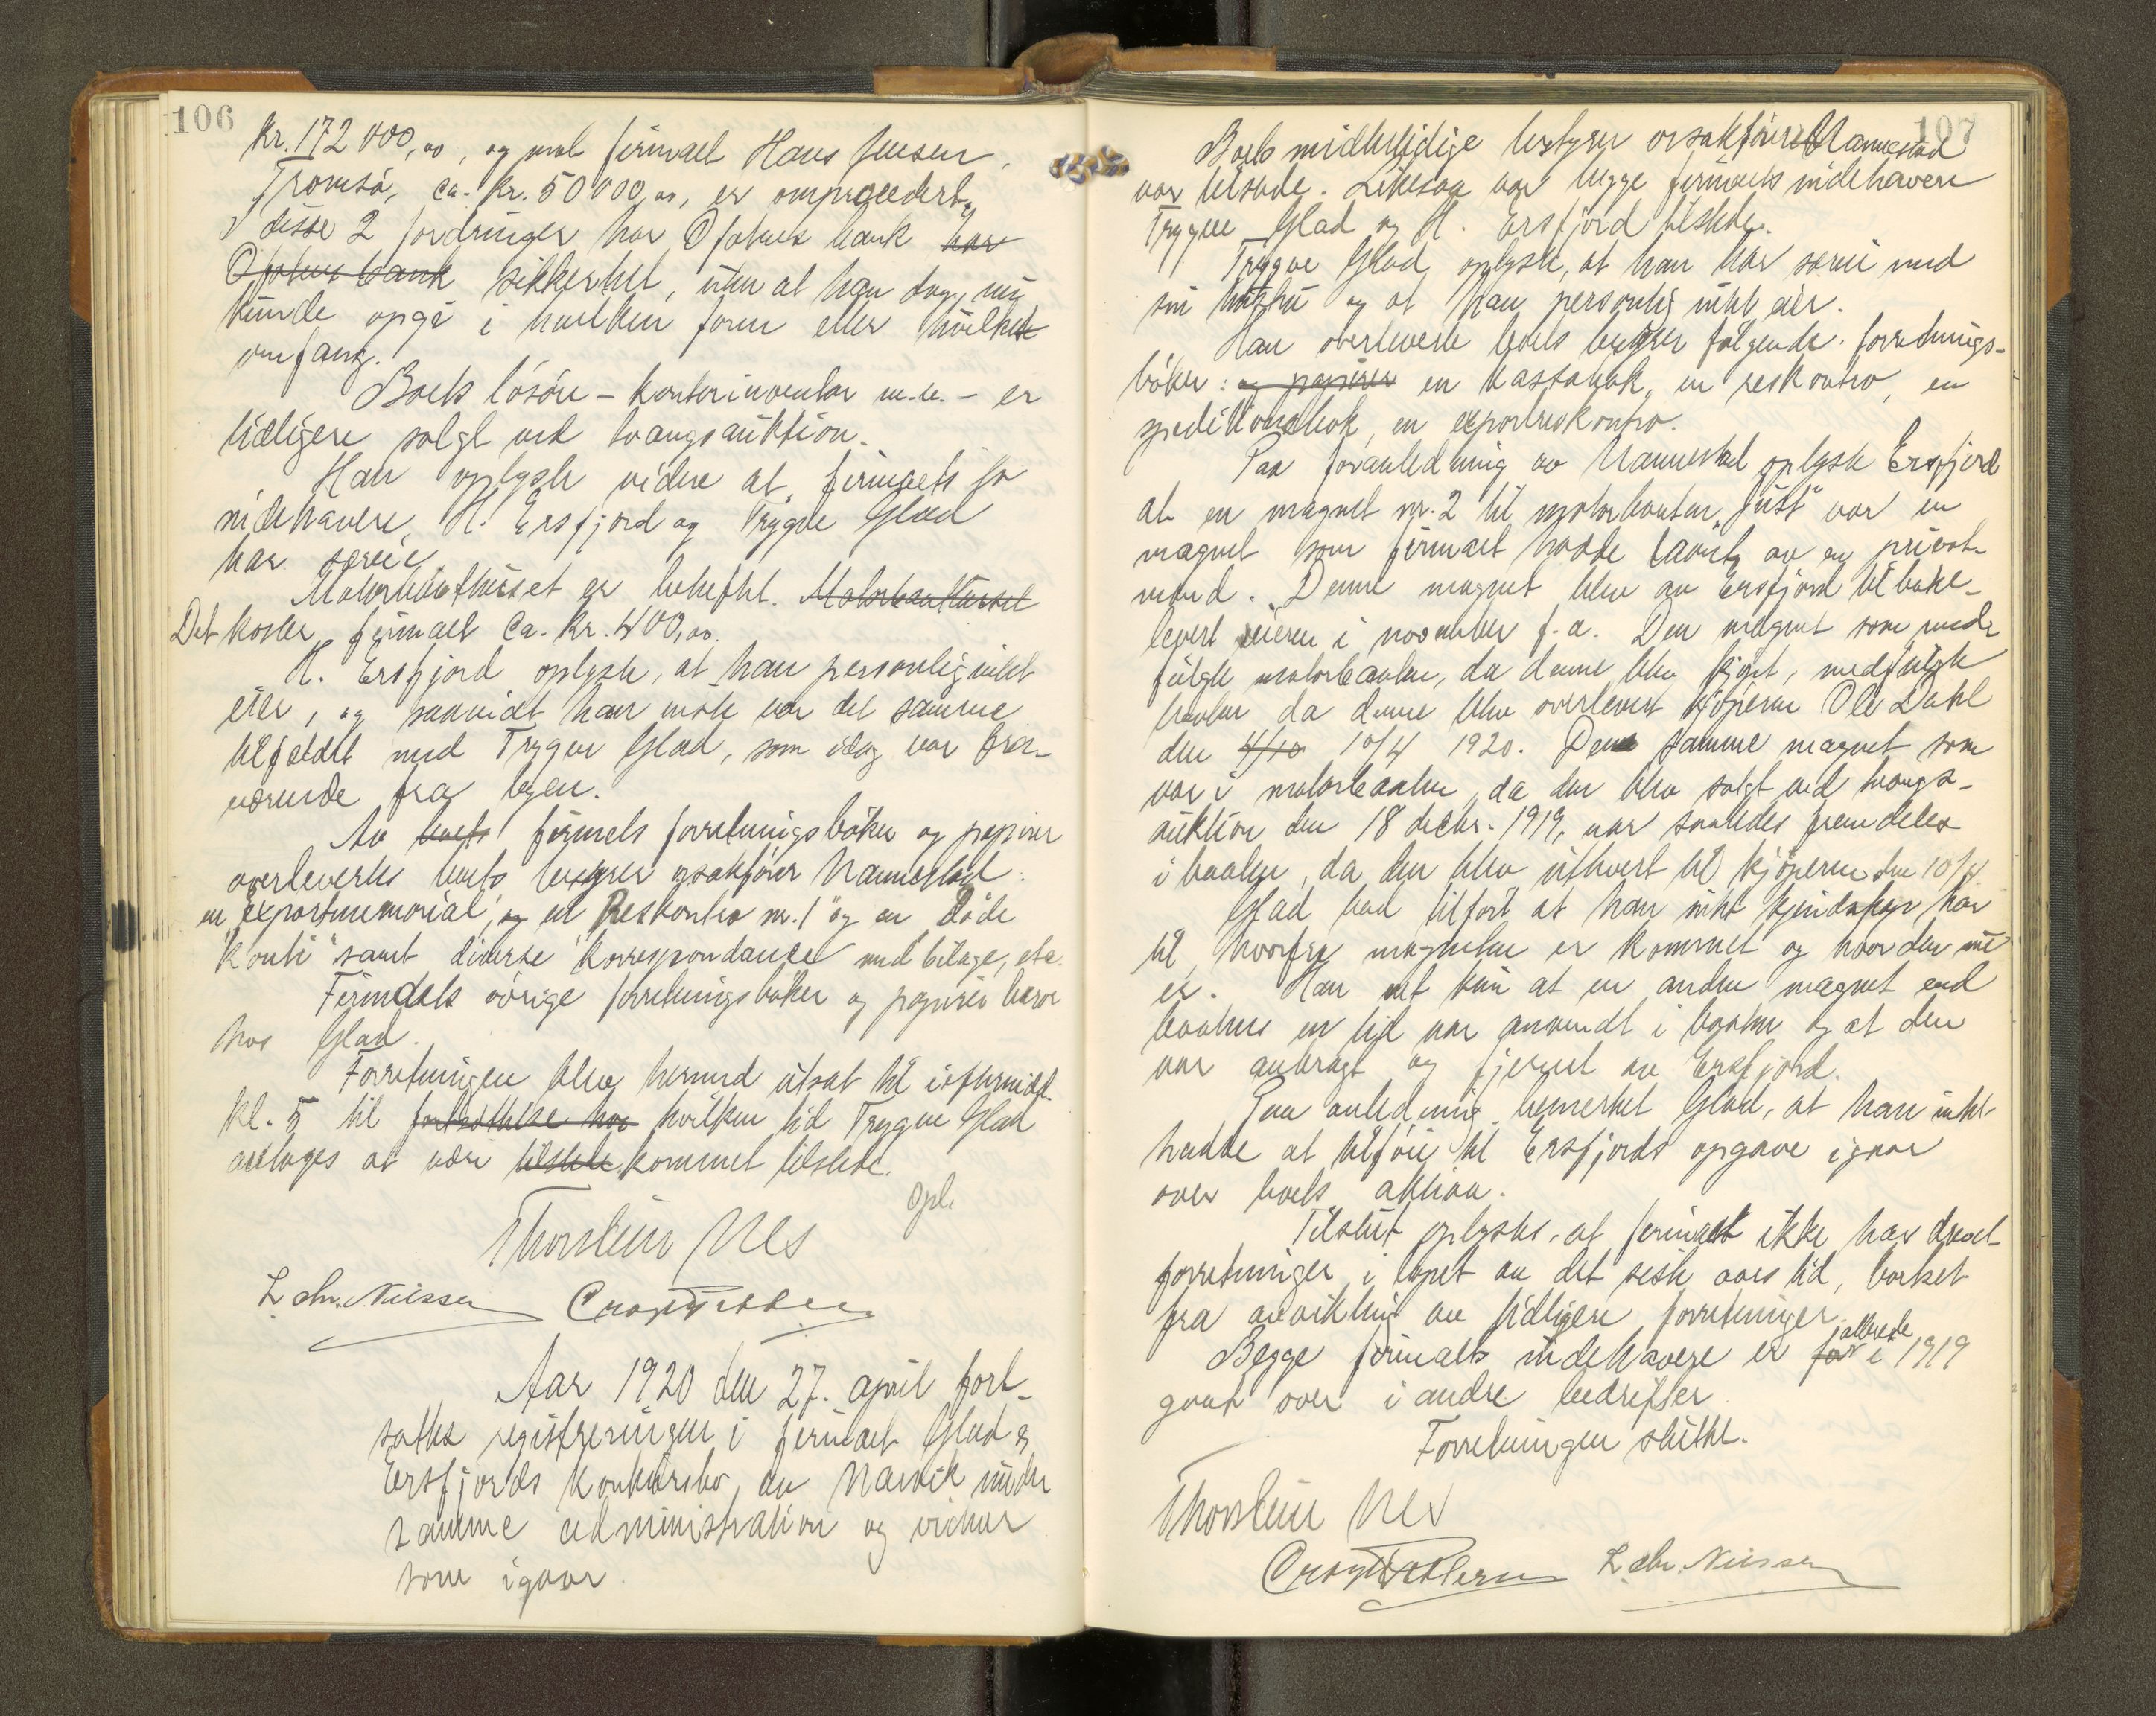 106
Kr. 172 000,00, og mot firmaet Hans Jensen,
Tromsö, ca. kr. 50 000,00, er omprocedert.
I disse 2 fordringer har Ofotens bank har
Ofotens bank sikkerhet, uten at han dog nu
kunde opgi i hvilken form eller hvilket
omfang.
Boets lösöre – kontorinventar m.v. – er
tidligere solgt ved tvangsauktion.
Han oplyste videre at firmaets to
indehavere, H. Ersfjord og Trygve Glad
har særeie
Motorbaathuset er beheftet. Motorbaathuset
Det koster firmaet ca. kr. 400,00.
H. Ersfjord oplyste, at han personlig intet
eier, og saavidt han viste var det samme
tilfældet med Trygve Glad, som idag var fra-
værende fra byen.
Av boets firmaets forretningsböker og papirer
overlevertes boets bestyrer o.sakförer Nannestad:
en "exportmemorial", og en "Reskontro nr. 1" og en "Döde
konti" samt diverse korrespondance med bilage, etc.
Firmaets övrige forretningsböker og papirer beror
hos Glad.
Forretningen blev hermed utsat til i eftermidd.
kl. 5 til fortsættelse hos hvilken tid Trygve Glad
antages at være tilstede kommet tilstede.
Opl.
Thorstein Nes
L. Chr. Nilssen
Aar 1920 den 27. april fort-
sattes registreringen i firmaet Glad &
Ersfjords konkursbo, av Narvik under
samme administration og vidner
som igaar.
107
Boets midlertidige bestyrer o.sakförer Nannestad
var tilstede. Likesaa var begge firmaets indehavere
Trygve Glad og H. Ersfjord tilstede.
Trygve Glad oplyste, at han har særeie med
sin hustru og at han personlig intet eier.
Han overleverte boets bestyrer fölgende forretnings-
böker: og papirer en kassabok, en reskontro, en
speditionsbok, en exportreskontro.
Paa foranledning av Nannestad oplyste Ersfjord
at en magnet nr. 2 til motorbaaten "Just" var en
magnet som firmaet hadde laant av en privat-
mand. Denne magnet blev av Ersfjord tilbake-
levert eieren i november f.a. Den magnet som med-
fulgte motorbaaten, da denne blev kjöpt, medfulgte
baaten da denne blev overlevert kjöperen Ole Dahl
den 4/10 10/4 1920. Den samme magnet som
var i motorbaaten, da den blev solgt ved tvangs-
auktion den 18 decbr. 1919, var saaledes fremdeles
i baaten, da den blev utlevert til kjöperen den 10/4.
Glad bad tilfört at han intet kjendskap har
til, hvorfra magneten er kommet og hvor den nu
er. Han vet kun at en anden magnet end
baatens en tid var anvendt i baaten og at den
var anbragt og fjernet av Ersfjord.
Paa anledning bemerket Glad, at han intet
hadde at tilföie til Ersfjords opgave igaar
over boets aktiva.
Tilslut oplystes, at firmaet ikke har drevet
forretninger i löpet av det siste aars tid, bortset
fra avvikling av tidligere forretninger.
Begge firmaets indehavere er för allerede i 1919
gaat over i andre bedrifter
Forretningen sluttet.
Thorstein Nes
L. Chr. Nilssen